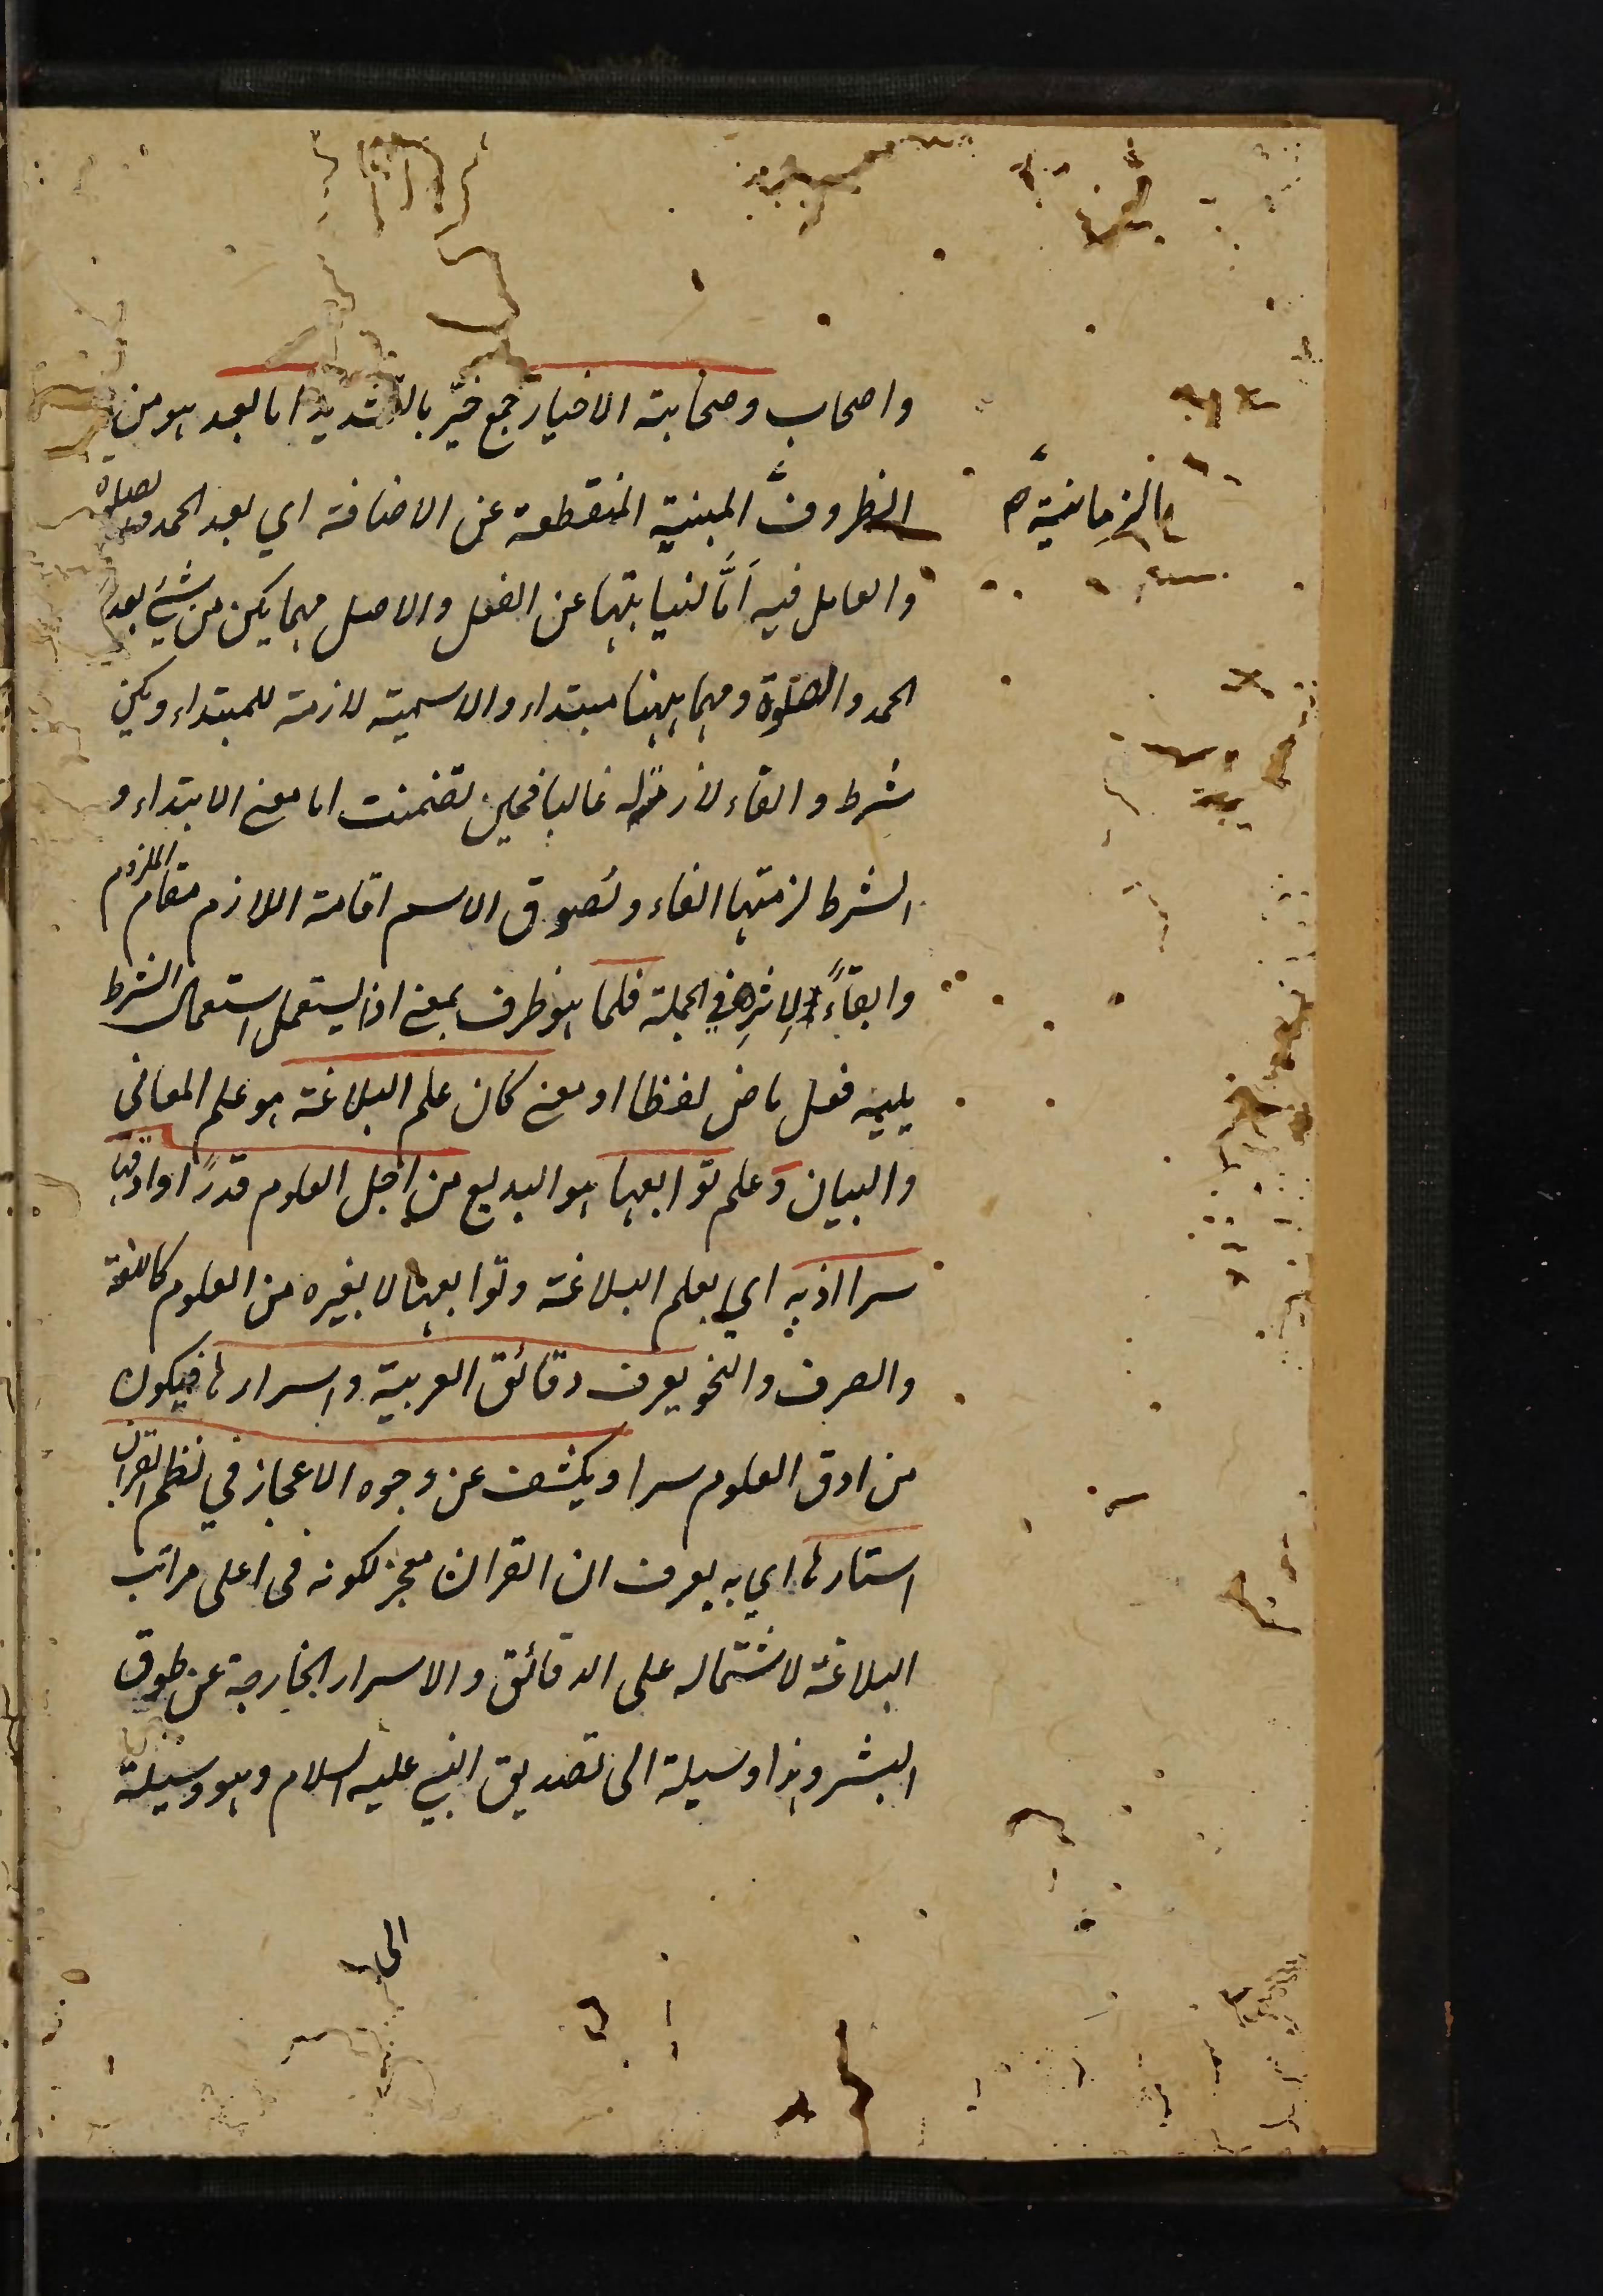 واصحاب وصحابته الاخيار جمع خيّر بالتشديد اما بعد هو من
الظروف المبنية المنقطعة عن الاضافة اي بعد الحمد والصلوة
الزمانية صح
والعامل فيه اَمَّا لنيابتها عن الفعل والاصل مهما يكن من شيئ بعد
الحمد والصلوة ومهما ههنا مبتداء والاسمية لازمة للمبتداء ويكن
شرط والفاء لازمة له غالبا فحين تضمنت اما معنى الابتداء و
الشرط لزمتها الفاء ولصوق الاسم اقامة اللازم مقام الملزوم
وابقاءً لاثره في الجملة فلما هو ظرف بمعنى اذ يستعمل استعمال الشرط
يليه فعل ماض لفظا او معنى كان علم البلاغة هو علم المعانى
والبيان وعلم توابعها هو البديع من اجل العلوم قدرًا وادقها
سرا اذ به اي بعلم البلاغة وتوابعها لا بغيره من العلوم كاللغة
والصرف والنحو يعرف دقائق العربية واسرارها فيكون
من ادق العلوم سرا ويكشف عن وجوه الاعجاز في نظم القران
استارها اي به يعرف ان القران معجز لكونه فى اعلى مراتب
البلاغة لاشتماله على الدقائق والاسرار الخارجة عن طوق
البشر وهذا وسيلة الى تصديق النبي عليه السلام وهو وسيلة
الى